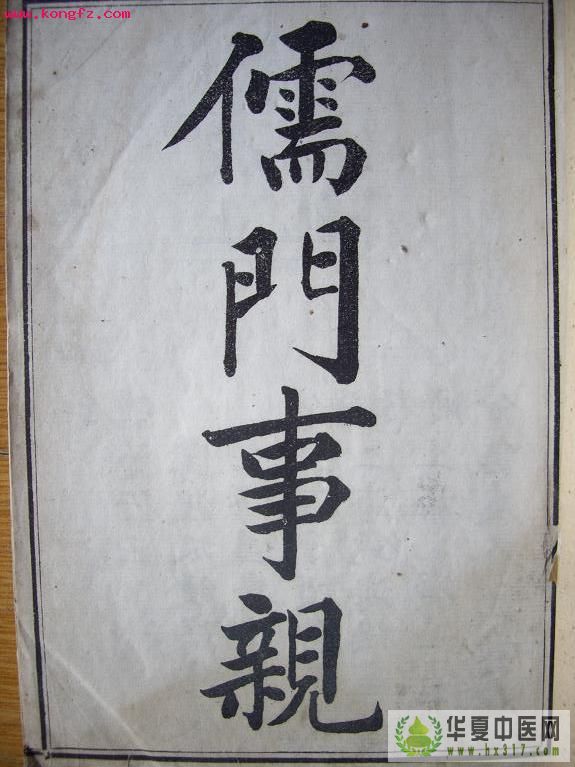 www.kongfz.com
儒門事親
华夏中医网
www.hx317.com